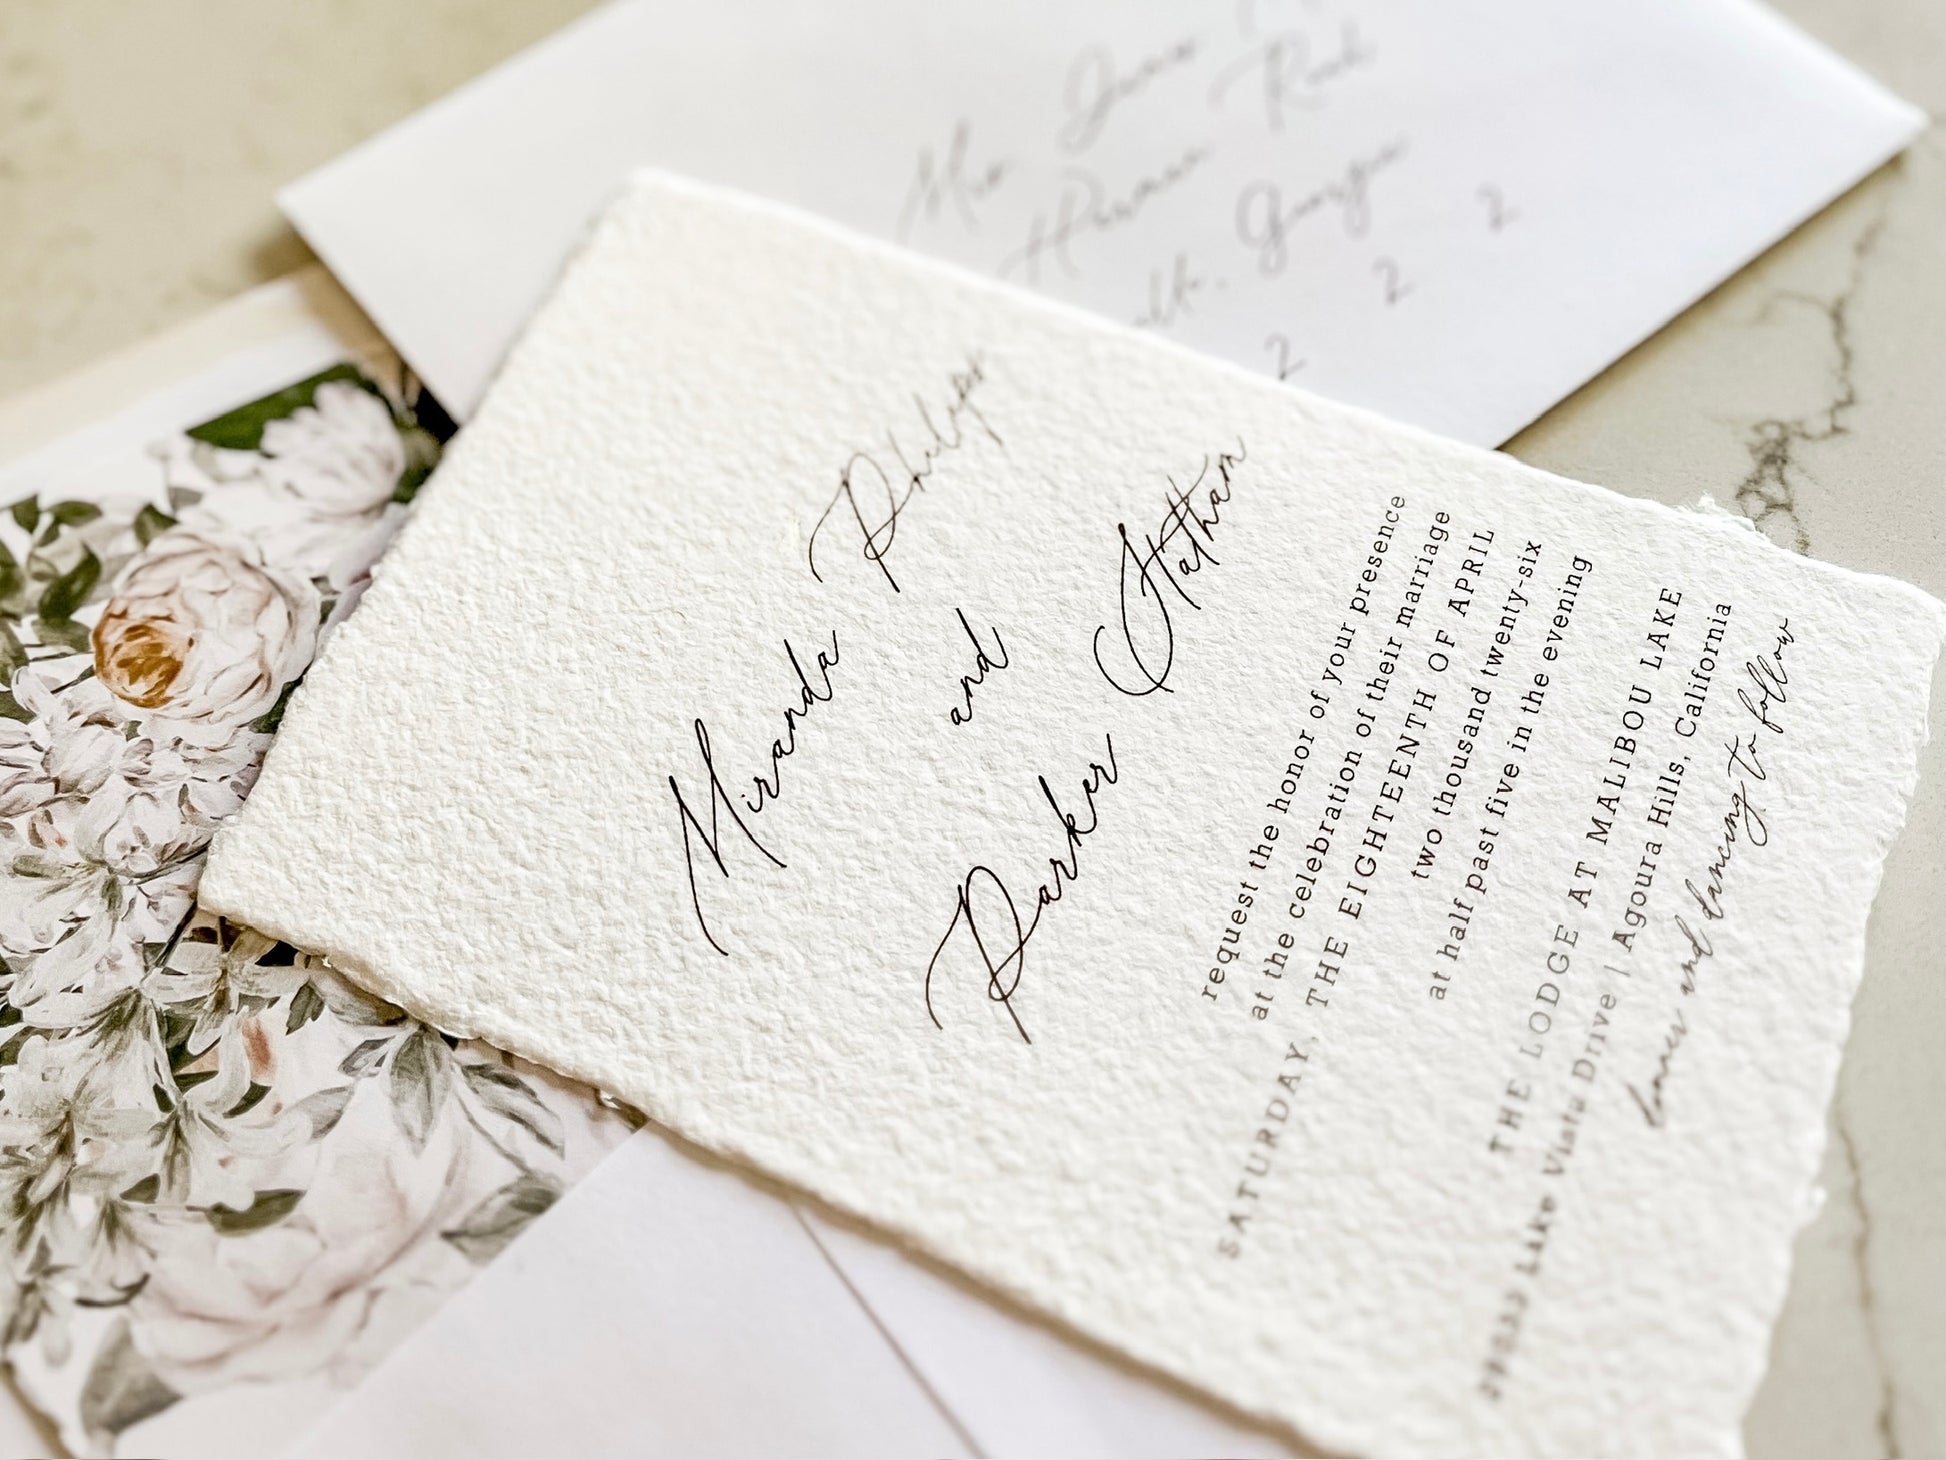 Miranda Phillips
and
Parker Hatham
request the honor of your presence
at the celebration of their marriage
SATURDAY, THE EIGHTEENTH OF APRIL
two thousand twenty-six
at half past five in the evening
THE LODGE AT MALIBOU LAKE
Lake Vista Drive | Agoura Hills, California
dinner and dancing to follow
Georgia
2 2 2